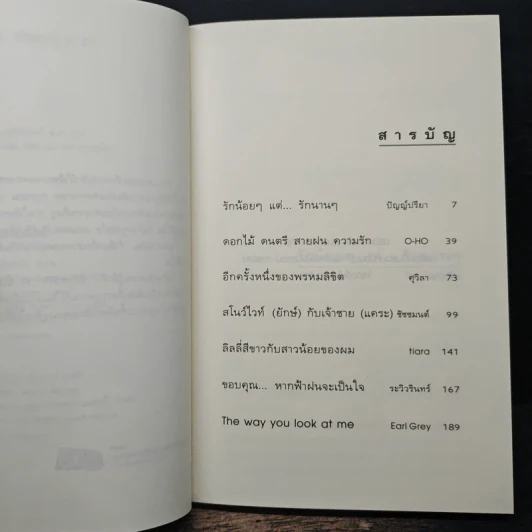 สารบัญ
รักน้อยๆ แต่... รักนานๆ ปัญญ์ปรียา 7
ดอกไม้ ดนตรี สายฝน ความรัก O-HO 39
อีกครั้งหนึ่งของพรหมลิขิต ศุวิลา 73
สโนว์ไวท์ (ยักษ์) กับเจ้าชาย (แคระ) ชัชชมนต์ 99
ลิลลี่สีขาวกับสาวน้อยของผม tiara 141
ขอบคุณ... หากฟ้าฝนจะเป็นใจ ระวิวรินทร์ 167
The way you look at me Earl Grey 189